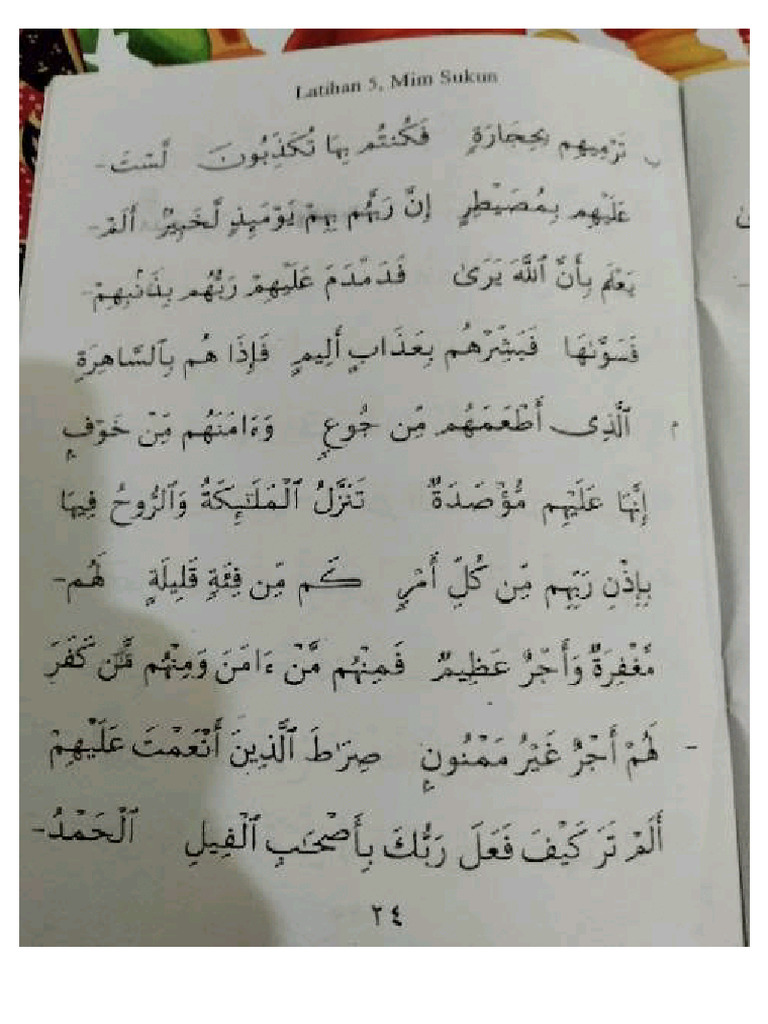 Latihan 5, Mim Sukun
ب تَرْمِيهِم بِحِجَارَةٍ فَكُنتُم بِهَا تُكَذِّبُونَ لَّسْتَ -
عَلَيْهِم بِمُصَيْطِرٍ إِنَّ رَبَّهُم بِهِمْ يَوْمَئِذٍ لَّخَبِيرٌ أَلَمْ -
يَعْلَم بِأَنَّ ٱللَّهَ يَرَىٰ فَدَمْدَمَ عَلَيْهِمْ رَبُّهُم بِذَنۢبِهِمْ -
فَسَوَّىٰهَا فَبَشِّرْهُم بِعَذَابٍ أَلِيمٍ فَإِذَا هُم بِٱلسَّاهِرَةِ
م ٱلَّذِىٓ أَطْعَمَهُم مِّن جُوعٍ وَءَامَنَهُم مِّنْ خَوْفٍ
إِنَّهَا عَلَيْهِم مُّؤْصَدَةٌ تَنَزَّلُ ٱلْمَلَٰٓئِكَةُ وَٱلرُّوحُ فِيهَا
بِإِذْنِ رَبِّهِم مِّن كُلِّ أَمْرٍ كَم مِّن فِئَةٍ قَلِيلَةٍ لَهُم -
مَّغْفِرَةٌ وَأَجْرٌ عَظِيمٌ فَمِنْهُم مَّنْ ءَامَنَ وَمِنْهُم مَّن كَفَرَ
- لَهُمْ أَجْرٌ غَيْرُ مَمْنُونٍ صِرَٰطَ ٱلَّذِينَ أَنْعَمْتَ عَلَيْهِمْ
أَلَمْ تَرَ كَيْفَ فَعَلَ رَبُّكَ بِأَصْحَٰبِ ٱلْفِيلِ ٱلْحَمْدُ -
٢٤